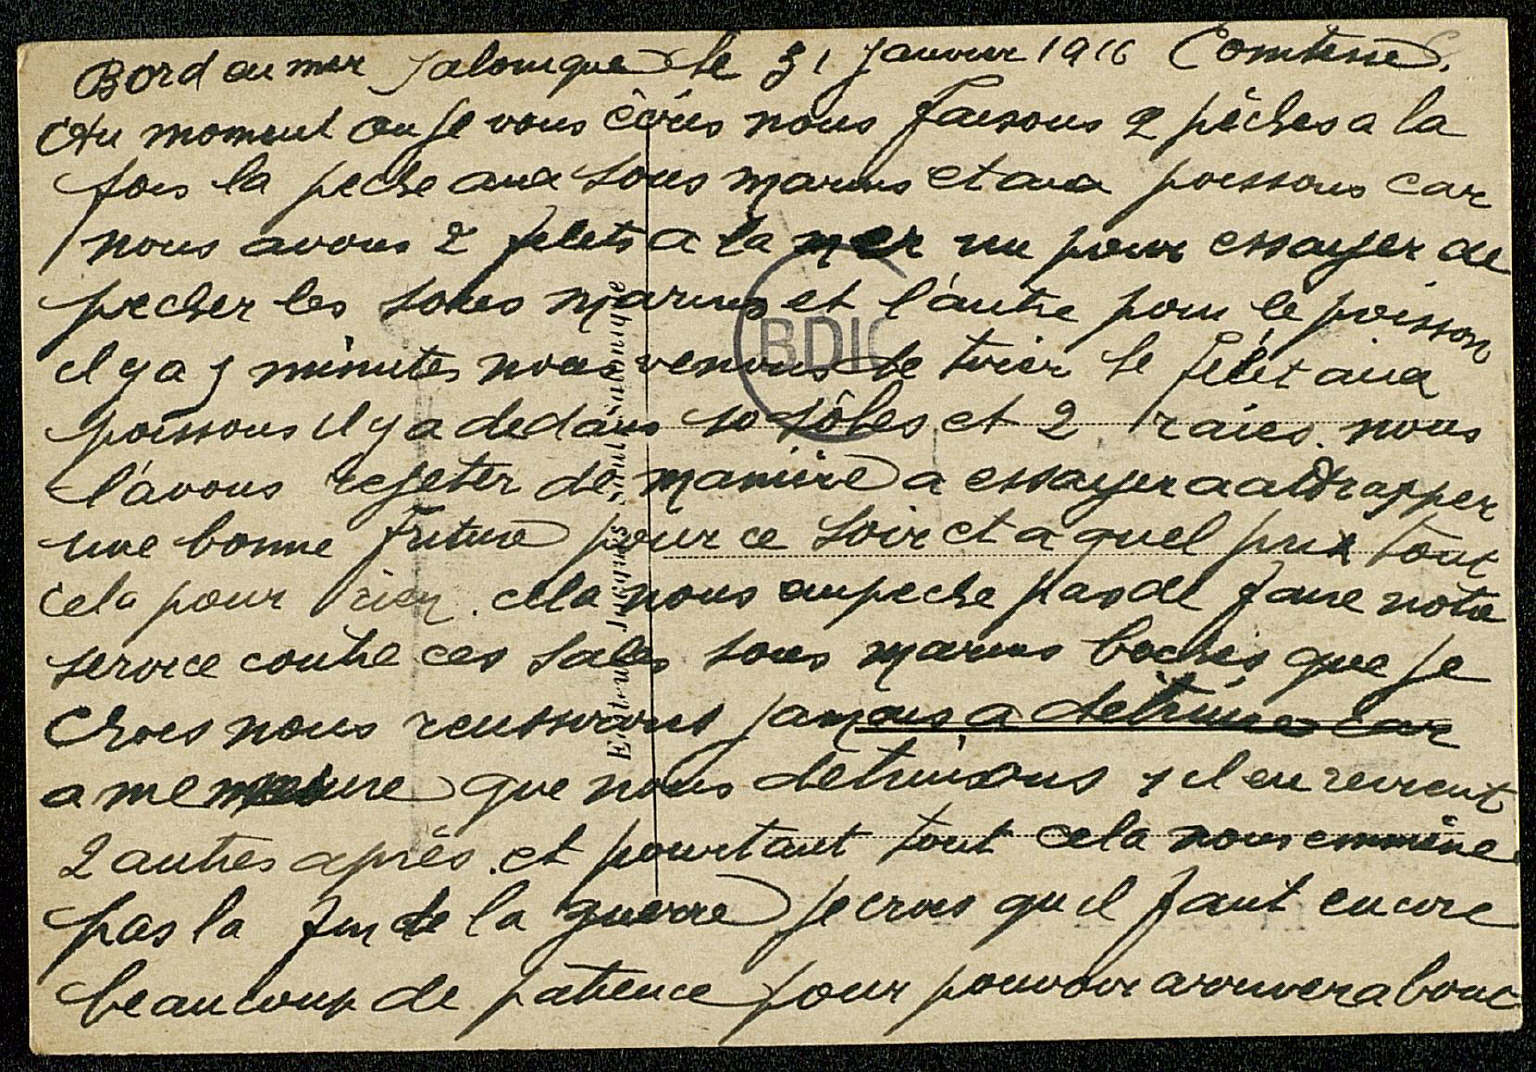 Bord au mer Salonique le 31 Janvier 1916 Comtesse.
Au moment ou je vous écris nous faisons 2 pêches a la
fois la peche aux sous marins et aux poissons car
nous avons 2 filets a la mer un pour essayer de
pecher les sous marins et l'autre pour le poisson
il y a 5 minutes nous venons de virer le filet aux
poissons il y a dedans 10 sôles et 2 raies. nous
l'avons rejeter de manière a essayer a attrapper
une bonne friture pour ce soir et a quel prix tout
cela pour rien. cela nous empeche pas de faire notre
service contre ces sales sous marins boches que je
crois nous reussirons jamais a détruire car
a me mesure que nous detruisons 1 il en revient
2 autres après. et pourtant tout cela nous emmène
pas la fin de la guerre je crois qu il faut encore
beaucoup de patience pour pouvoir arriver a bout
BDIC
Editeur Jacques Saul, Salonique